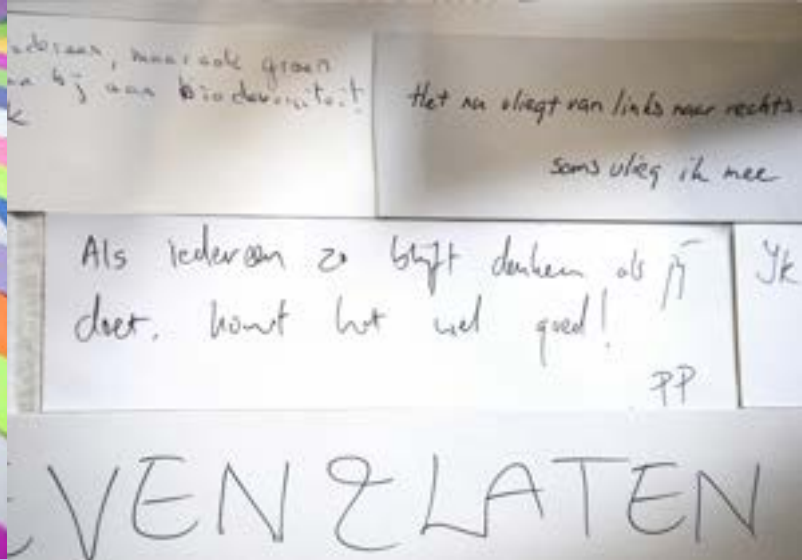 maar ook groen
bij aan biodiversiteit
Het nu vliegt van links naar rechts.
soms vlieg ik mee
Als iedereen zo blijft denken als jij
doet, komt het wel goed!
PP
Ik
EVEN & LATEN